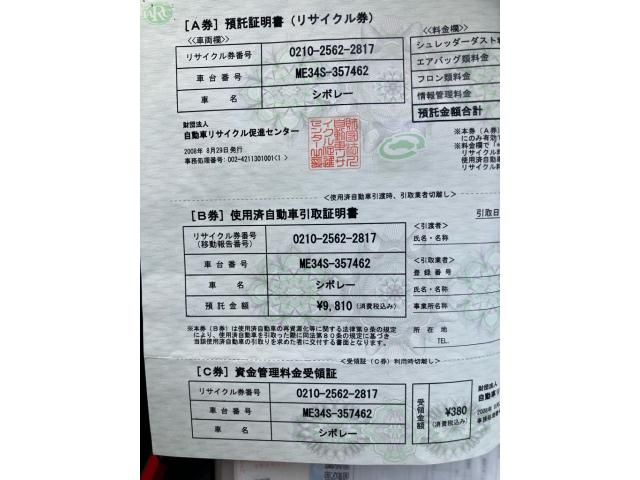 [A券] 預託証明書 (リサイクル券)
≪車両欄≫
≪料金欄≫
リサイクル券番号 0210-2562-2817
シュレッダーダスト
車台番号 ME34S-357462
エアバッグ類料金
フロン類料金
車名 シボレー
情報管理料金
預託金額合計
財団法人
自動車リサイクル促進センター
2008年 8月29日 発行
事務処理番号: 002-4211301001<1>
※本券 (A券)
にのみ有効
※料金欄で「*
リサイクル料
<使用済自動車引渡時、引取業者切離し>
[B券] 使用済自動車引取証明書
引取日
リサイクル券番号
(移動報告番号)
0210-2562-2817
<引渡者>
氏名・名称
車台番号 ME34S-357462
<引取業者>
登録番号
車名 シボレー
氏名・名称
預託金額 ¥9,810 (消費税込み)
事業所名称
※本券 (B券) は使用済自動車の再資源化等に関する法律第9条の規定
により、使用済自動車を引取った際に同法第80条の規定に基づき
当該使用済自動車の引取りを求めた者に交付する書面となります。
所在地
TEL.
<受領証 (C券) 利用時切離し>
[C券] 資金管理料金受領証
リサイクル券番号 0210-2562-2817
車台番号 ME34S-357462
車名 シボレー
受領金額
¥380
(消費税込み)
財団法人
自動車リ
2008年